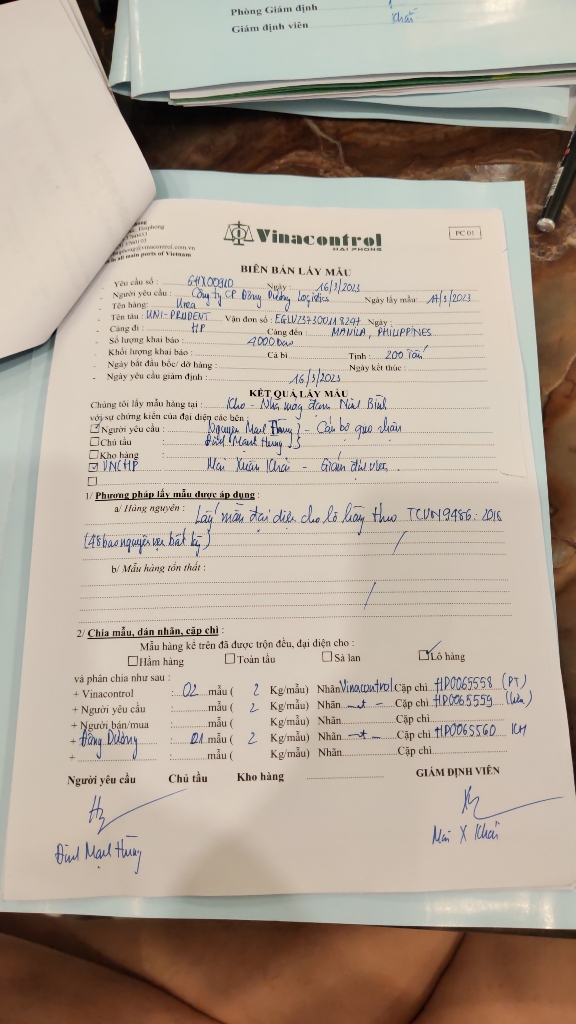 Phòng Giám định
Giám định viên Khải
Vinacontrol
HAI PHONG
PC 01
in all main ports of Vietnam
BIÊN BẢN LẤY MẪU
- Yêu cầu số : Ngày : 16/3/2023
- Người yêu cầu : Công ty CP Đông Dương Logistics Ngày lấy mẫu: 17/3/2023
- Tên hàng: Urea
- Tên tàu : UNI-PRUDENT Vận đơn số : Ngày :
- Cảng đi : HP Cảng đến : MANILA, PHILIPPINES
- Số lượng khai báo : 4000 bao
- Khối lượng khai báo : Cả bì Tịnh : 200 Tấn
- Ngày bắt đầu bốc/ dỡ hàng : Ngày kết thúc :
- Ngày yêu cầu giám định : 16/3/2023
KẾT QUẢ LẤY MẪU
Chúng tôi lấy mẫu hàng tại : Kho - Nhà máy đạm Ninh Bình
với sự chứng kiến của đại diện các bên :
Người yêu cầu : - Cán bộ giao nhận
Chủ tầu : Đinh Mạnh Hùng
Kho hàng :
VNCHP Mai Xuân Khải - Giám định viên
1/ Phương pháp lấy mẫu được áp dụng :
a/ Hàng nguyên : Lấy mẫu đại diện cho lô hàng theo TCVN 9486: 2018
(48 bao nguyên vẹn bất kỳ)
b/ Mẫu hàng tổn thất :
2/ Chia mẫu, dán nhãn, cặp chì :
Mẫu hàng kể trên đã được trộn đều, đại diện cho :
Hầm hàng Toàn tầu Sà lan Lô hàng
và phân chia như sau :
+ Vinacontrol : 02 mẫu ( 2 Kg/mẫu) Nhãn Vinacontrol Cặp chì HP0065558 (PT)
+ Người yêu cầu : mẫu ( 2 Kg/mẫu) Nhãn Cặp chì HP0065559 (Lưu)
+ Người bán/mua : mẫu ( Kg/mẫu) Nhãn Cặp chì
+ Đông Dương : 01 mẫu ( 2 Kg/mẫu) Nhãn Cặp chì HP0065560 KH
+ : mẫu ( Kg/mẫu) Nhãn Cặp chì
Người yêu cầu Chủ tầu Kho hàng GIÁM ĐỊNH VIÊN
Đinh Mạnh Hùng Mai X Khải